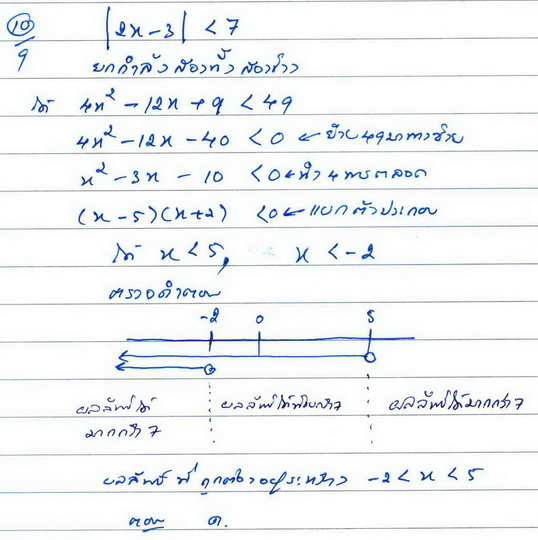 10
9
|2x - 3| < 7
ยกกำลังสองทั้งสองข้าง
ได้ 4x² - 12x + 9 < 49
4x² - 12x - 40 < 0 ← ย้าย 49 มาทางซ้าย
x² - 3x - 10 < 0 ← นำ 4 หารตลอด
(x - 5)(x + 2) < 0 ← แยกตัวประกอบ
ได้ x < 5, x < -2
ตรวจคำตอบ
-2 0 5
ผลลัพธ์ได้ มากกว่า 7
ผลลัพธ์ได้น้อยกว่า 7
ผลลัพธ์ได้มากกว่า 7
ผลลัพธ์ ที่ ถูกต้องอยู่ระหว่าง -2 < x < 5
ตอบ ค.